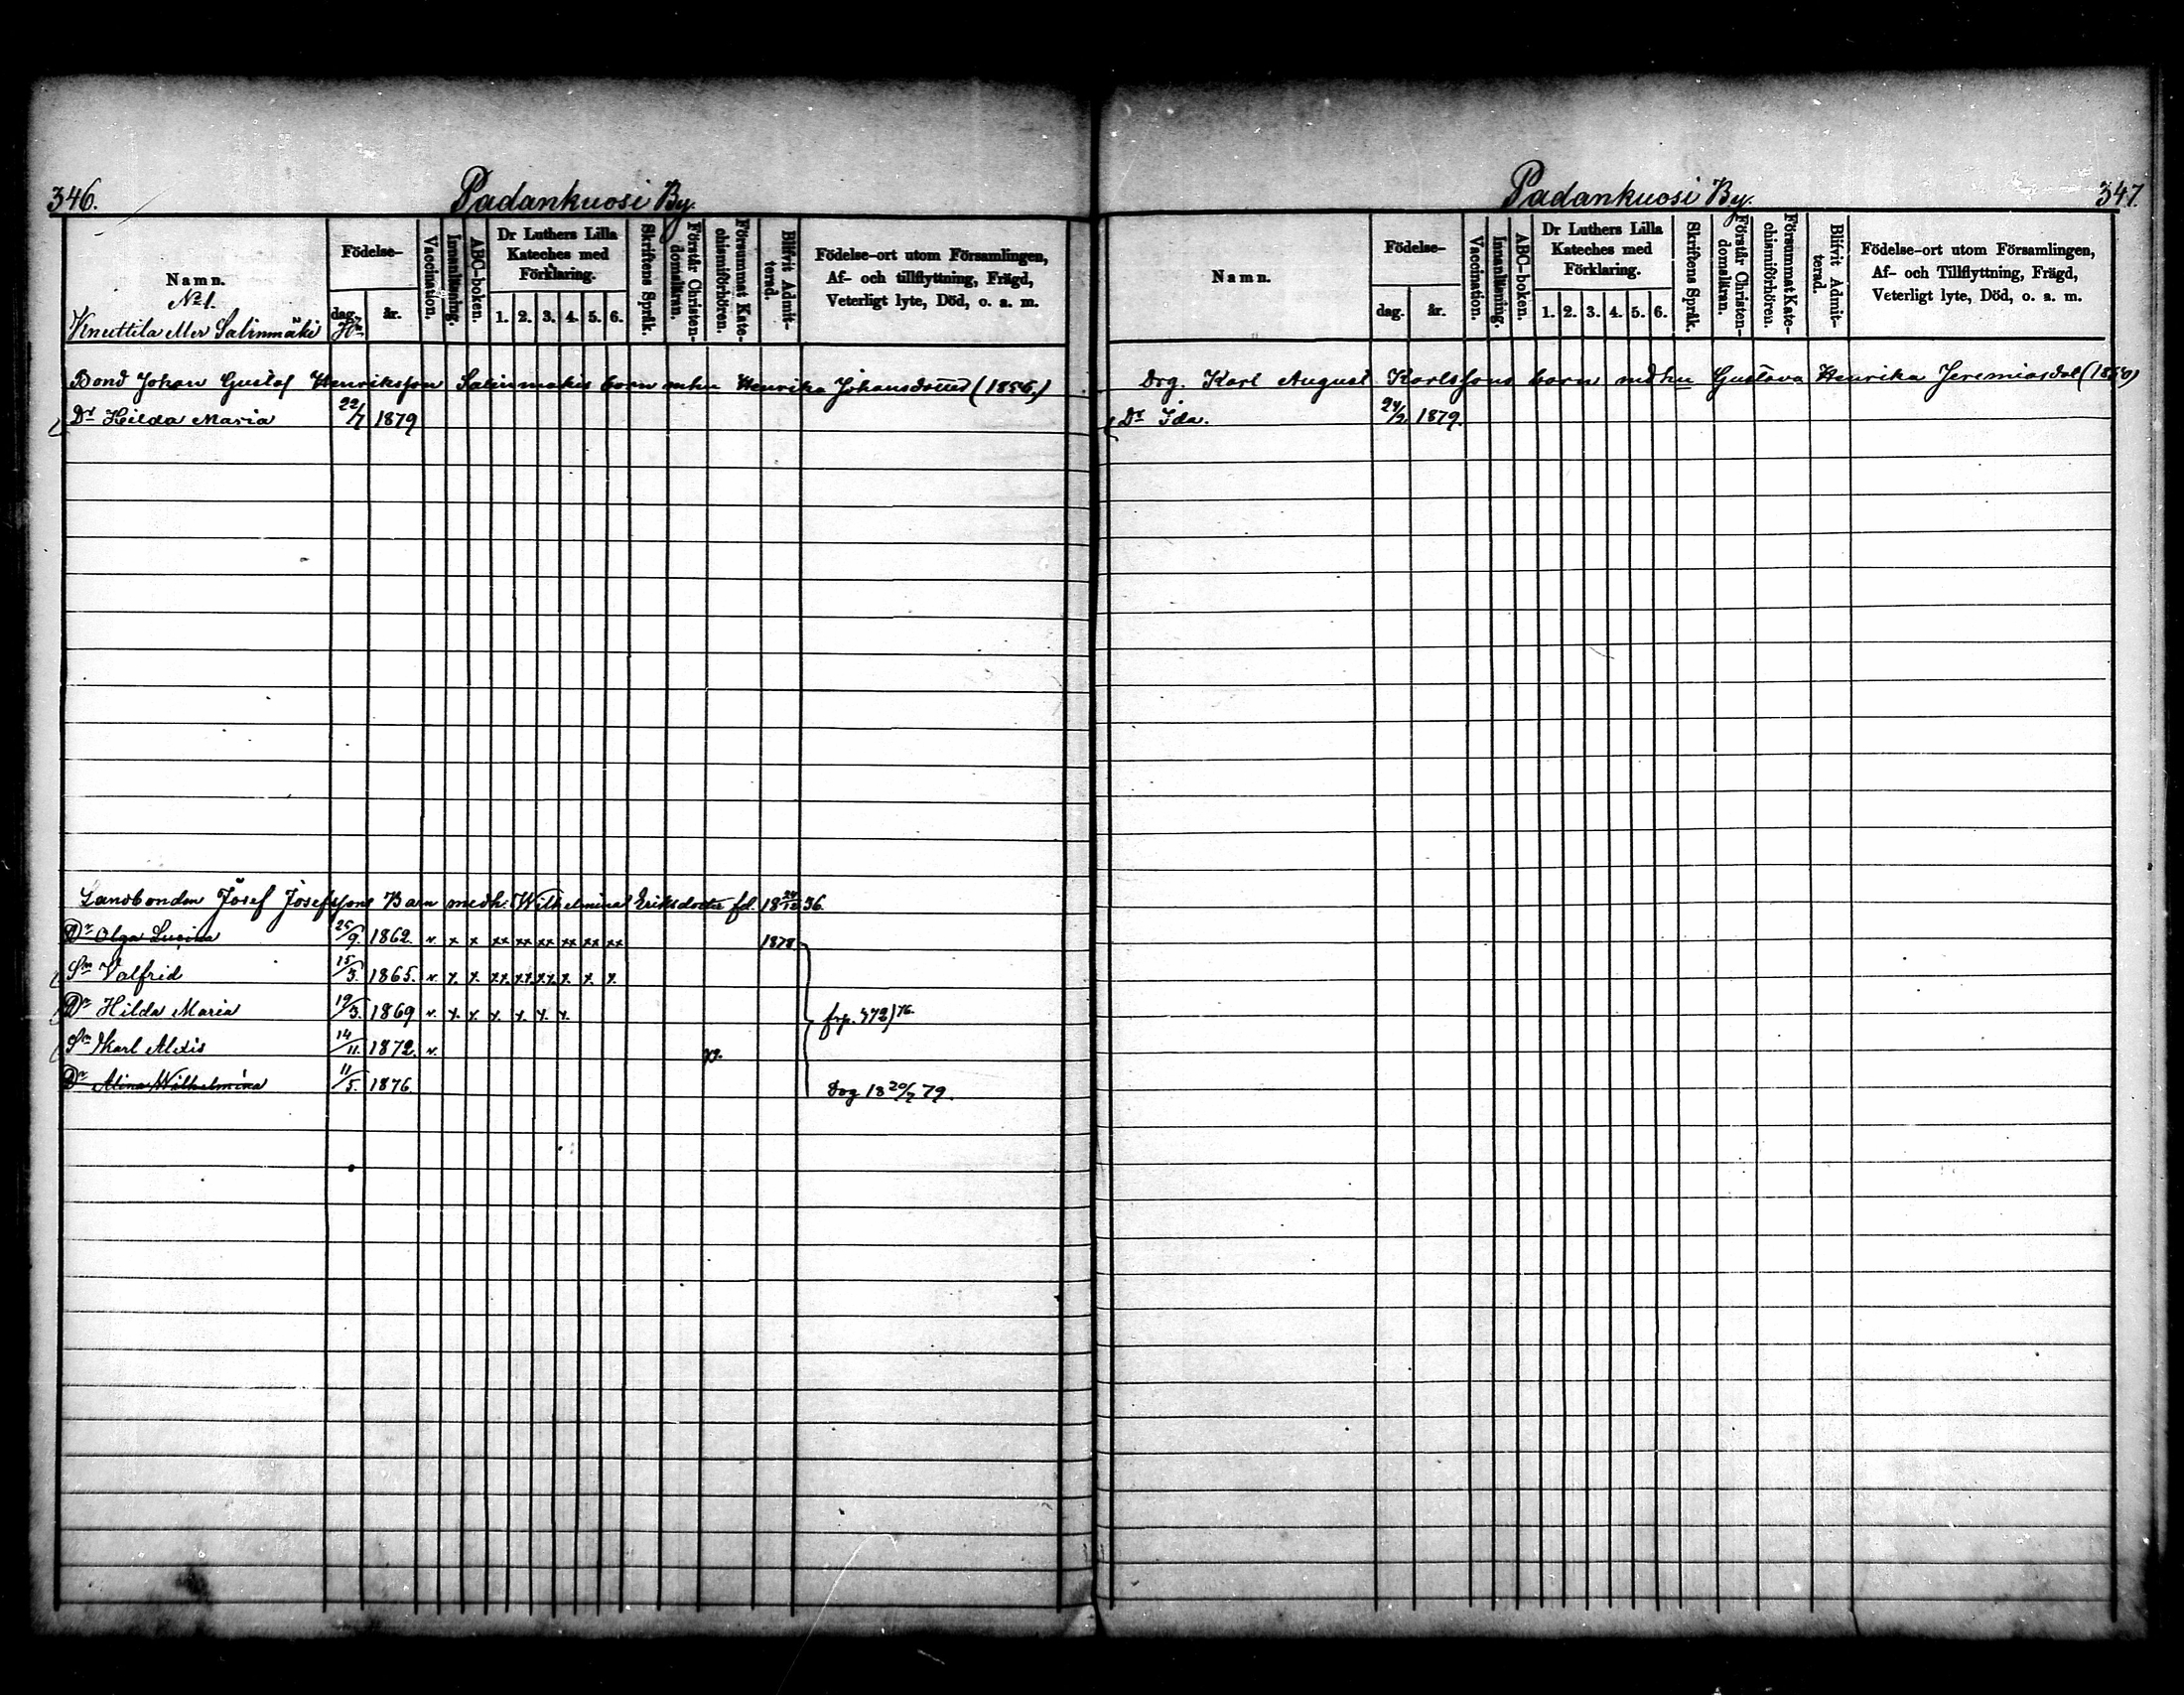 346.
Padankuosi By.
Namn.
Födelse-
dag.
år.
Vaccination.
Innanläsning.
ABC-boken.
Dr Luthers Lilla Kateches med Förklaring.
1. 2. 3. 4. 5. 6.
Skriftens Språk.
Förstår Christendomsläran.
Försummat Katechismiförhören.
Blifvit Admitterad.
Födelse-ort utom Församlingen,
Af- och tillflyttning, Frägd,
Veterligt lyte, Död, o. a. m.
No 1.
Knuttila eller Salinmäki
Bond Johan Gustaf Henriksson Salinmäkis barn Henrika Johansdotter (1856.)
Dr Hilda Maria 22/7 1879
Landbonden Josef Josefssons Barn med h. Wilhelmina Eriksdotter fd. 18 24/12 36.
Dr Olga Lucina 25/9. 1862. v. x x xx xx xx xx xx xx 1878
Sn Valfrid 15/3. 1865. v. x. x. xx. xx. xx. x. x. x.
Dr Hilda Maria 19/3. 1869 v. x. x. x. x. x. x. frp. 472) 76.
Sn Karl Alexis 14/11. 1872. v.
Dr Alina Wilhelmina 11/5. 1876. Dog 18 20/7 79.
Padankuosi By.
347.
Namn.
Födelse-
dag.
år.
Vaccination.
Innanläsning.
ABC-boken.
Dr Luthers Lilla Kateches med Förklaring.
1. 2. 3. 4. 5. 6.
Skriftens Språk.
Förstår Christendomsläran.
Försummat Katechismiförhören.
Blifvit Admitterad.
Födelse-ort utom Församlingen,
Af- och Tillflyttning, Frägd,
Veterligt lyte, Död, o. a. m.
Drg. Karl August Karlssons barn md hu Gustava Henrika Jeremiasdot
Dr Ida. 24/2. 1879.